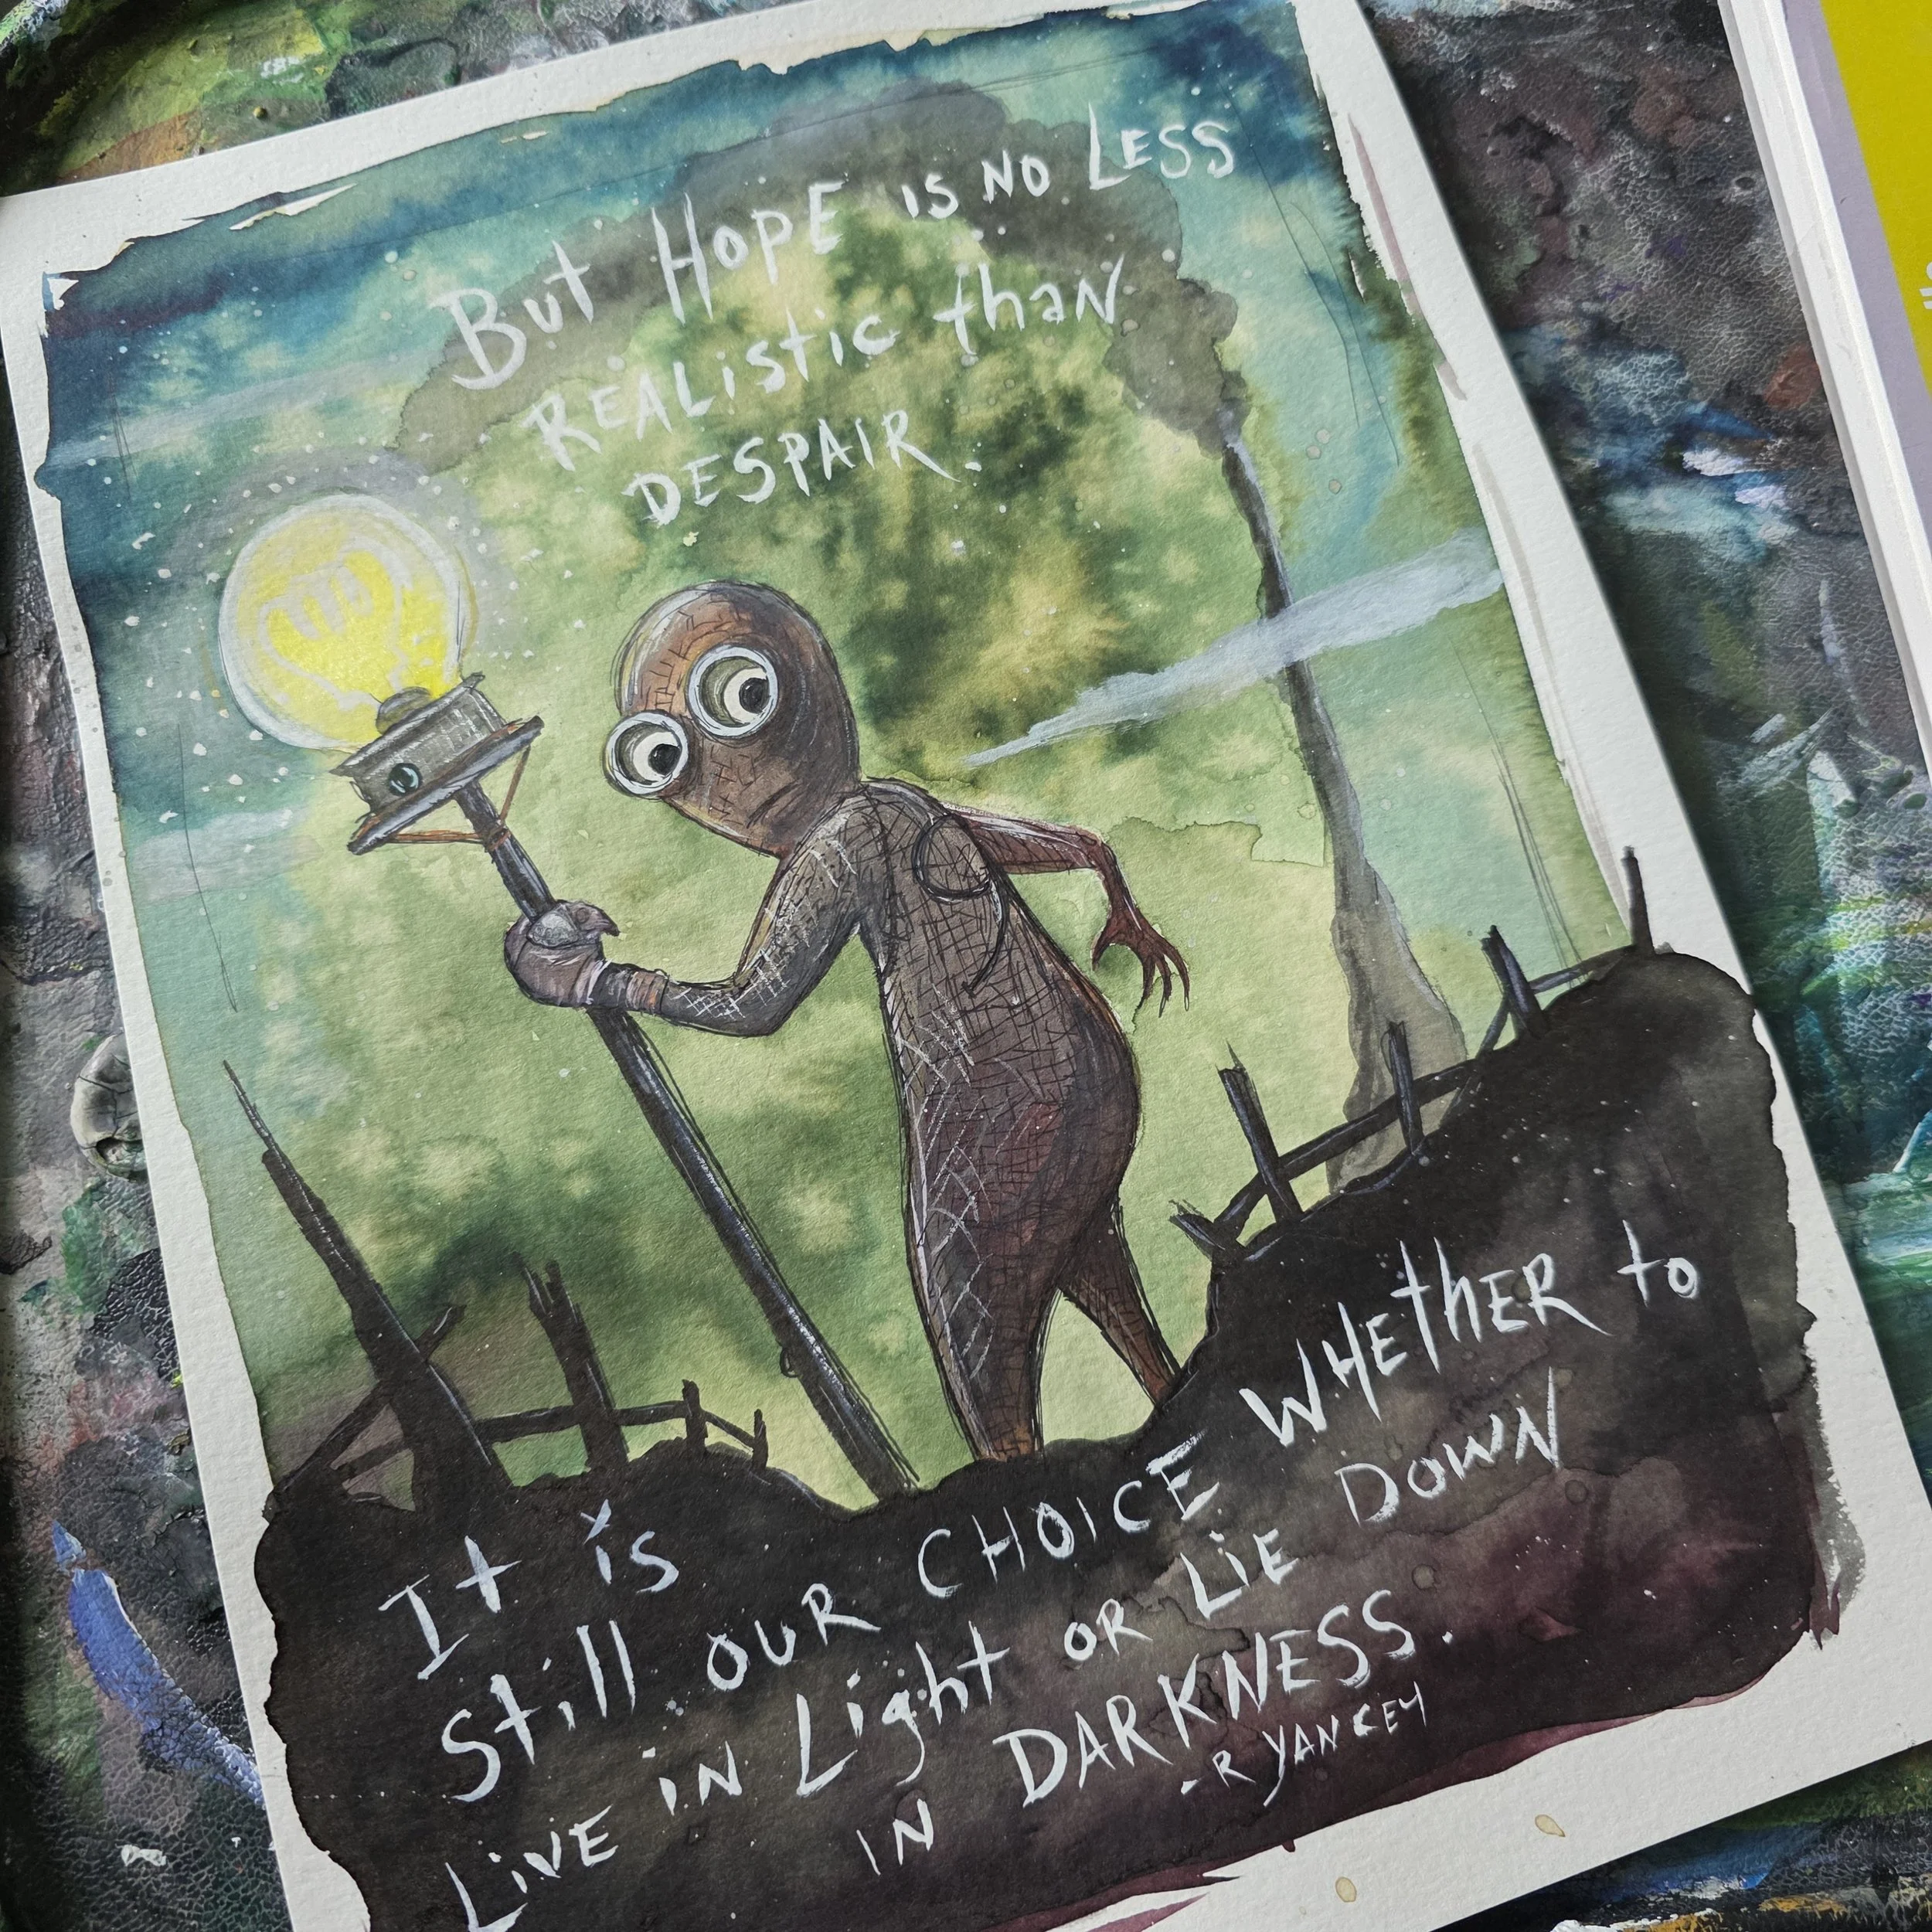 But HOPE is NO LESS
REALIStic thaN
DESPAIR.
It is
Still OUR CHOICE WHEthER to
LiVE iN Light OR LiE DOWN
IN DARKNESS.
-R YANCEY